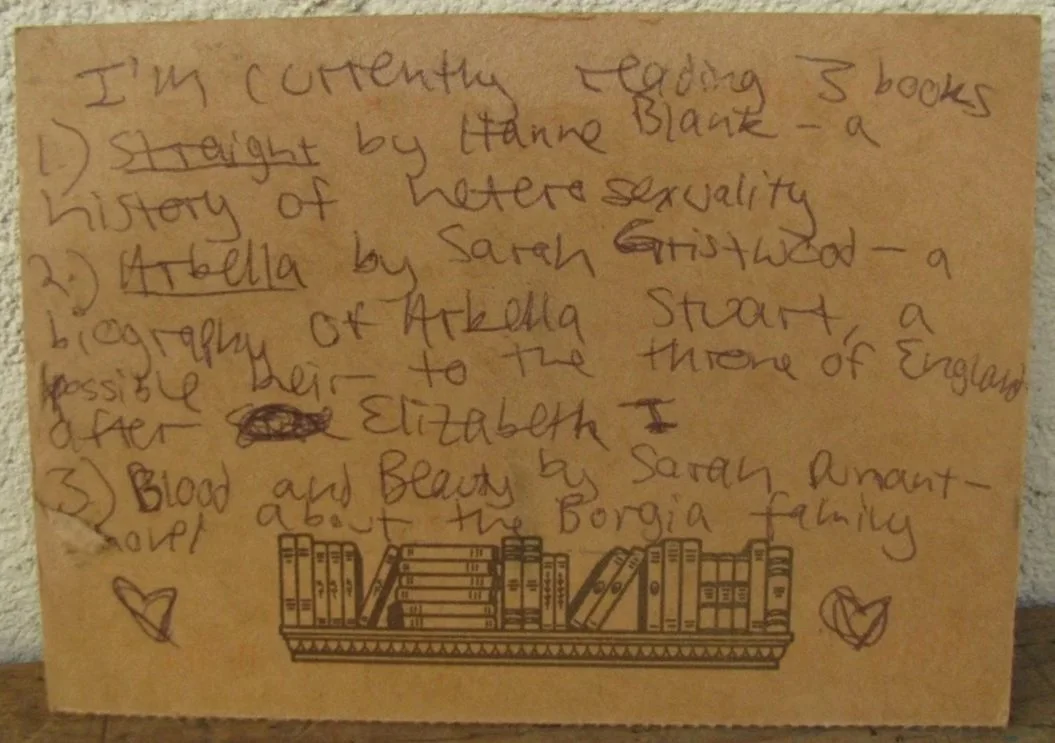 I'm currently reading 3 books
1.) Straight by Hanne Blank - a
history of heterosexuality
2.) Arbella by Sarah Gristwood - a
biography of Arbella Stuart, a
possible heir to the throne of England
after Elizabeth I
3.) Blood and Beauty by Sarah Dunant -
novel about the Borgia family